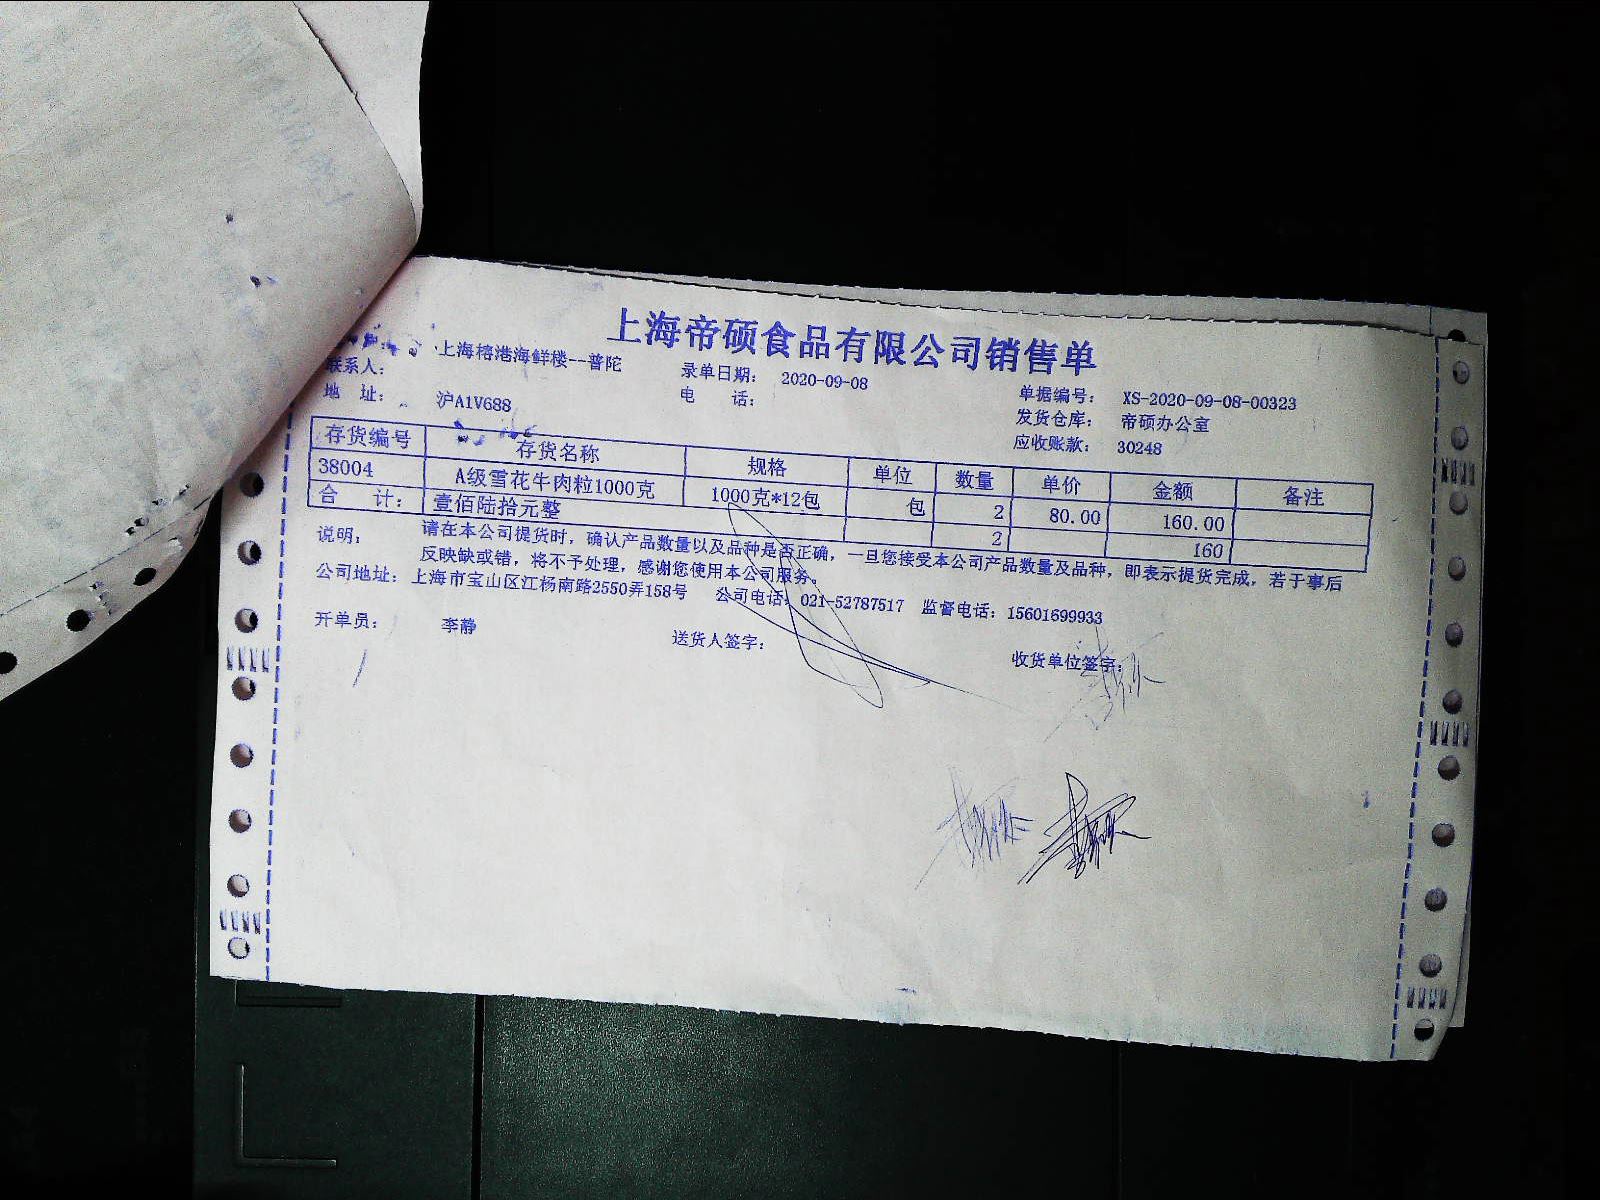 上海帝硕食品有限公司销售单
上海榕港海鲜楼--普陀 录单日期: 2020-09-08 单据编号: XS-2020-09-08-00323
联系人: 电 话: 发货仓库: 帝硕办公室
地 址: 沪A1V688 应收账款: 30248
存货编号 存货名称 规格 单位 数量 单价 金额 备注
38004 A级雪花牛肉粒1000克 1000克*12包 包 2 80.00 160.00
合 计: 壹佰陆拾元整 2 160
说明: 请在本公司提货时，确认产品数量以及品种是否正确，一旦您接受本公司产品数量及品种，即表示提货完成，若于事后
反映缺或错，将不予处理，感谢您使用本公司服务。
公司地址: 上海市宝山区江杨南路2550弄158号 公司电话: 021-52787517 监督电话: 15601699933
开单员: 李静 送货人签字: 收货单位签字: